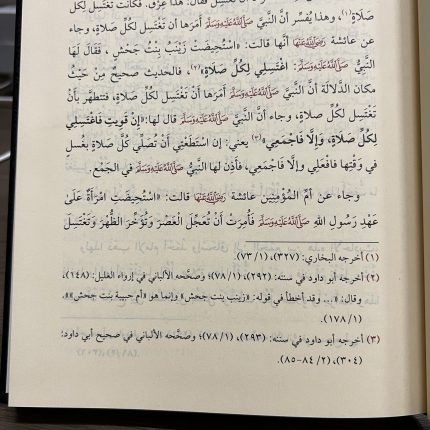 صَلَاةٍ»(١)، وهذا يُفسر أنَّ النَّبيَّ ﷺ أمَرَها أن تَغْتَسِل لكُلِّ صَلَاةٍ، وجاء
عن عائشة رَضِيَ اللَّهُ عَنْهَا أنَّها قالت: «اسْتُحِيضَتْ زَيْنَبُ بِنْتُ جَحْشٍ، فَقَالَ لَهَا
النَّبِيُّ ﷺ: اغْتَسِلِي لِكُلِّ صَلَاةٍ»(٢)، فالحديث صحيحٌ مِنْ حَيْثُ
مكان الدَّلالة أنَّ النَّبيَّ ﷺ أمَرَها أن تَغْتَسِل لكُلِّ صلاةٍ، فتتطهَّر بأن
تَغْتَسِل لكُلِّ صلاةٍ، وجاء أنَّ النَّبيَّ ﷺ قال لها: «إِنْ قَوِيتِ فَاغْتَسِلِي
لِكُلِّ صَلَاةٍ، وَإِلَّا فَاجْمَعِي»(٣) يعني: إن استَطَعْتِي أن تُصلِّي كلَّ صلاةٍ بغُسلٍ
في وَقْتِها فافْعَلِي وإلَّا فاجْمَعِي، فأَذِن لها النَّبيُّ ﷺ في الجَمْع.
وجاء عن أمِّ المُؤْمِنِين عائشة رَضِيَ اللَّهُ عَنْهَا قالت: «اسْتُحِيضَتِ امْرَأَةٌ عَلَى
عَهْدِ رَسُولِ اللهِ ﷺ فَأُمِرَتْ أَنْ تُعَجِّلَ العَصْرَ وَتُؤَخِّرَ الظُّهْرَ وَتَغْتَسِلَ
(١) أخرجه البخاري: (٣٢٧)، (٧٣/١).
(٢) أخرجه أبو داود في سننه: (٢٩٢)، (٧٨/١)؛ وصحَّحه الألباني في إرواء الغليل: (١٤٨)،
وقال: «... وقد أخطأ في قوله: «زينب بنت جحش» وإنما هو «أم حبيبة بنت جحش»».
(١٧٨/١).
(٣) أخرجه أبو داود في سننه: (٢٩٣)، (٧٨/١)؛ وصحَّحه الألباني في صحيح أبي داود:
(٣٠٤)، (٢/ ٨٤-٨٥).